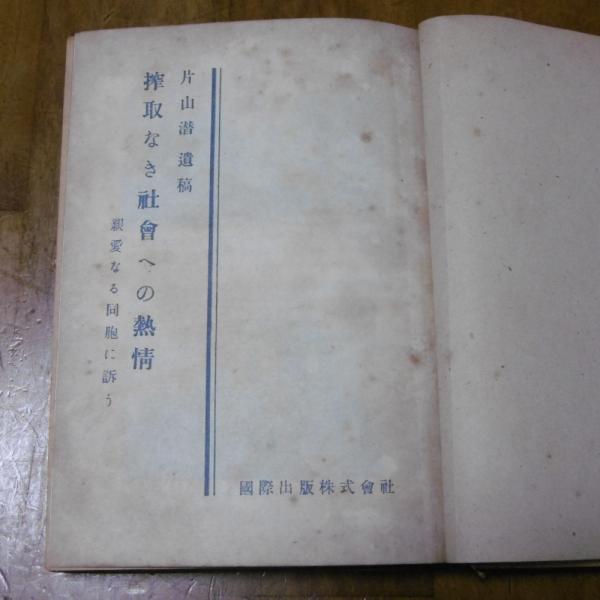 片山潜 遺稿
搾取なき社會への熱情
親愛なる同胞に訴う
國際出版株式會社